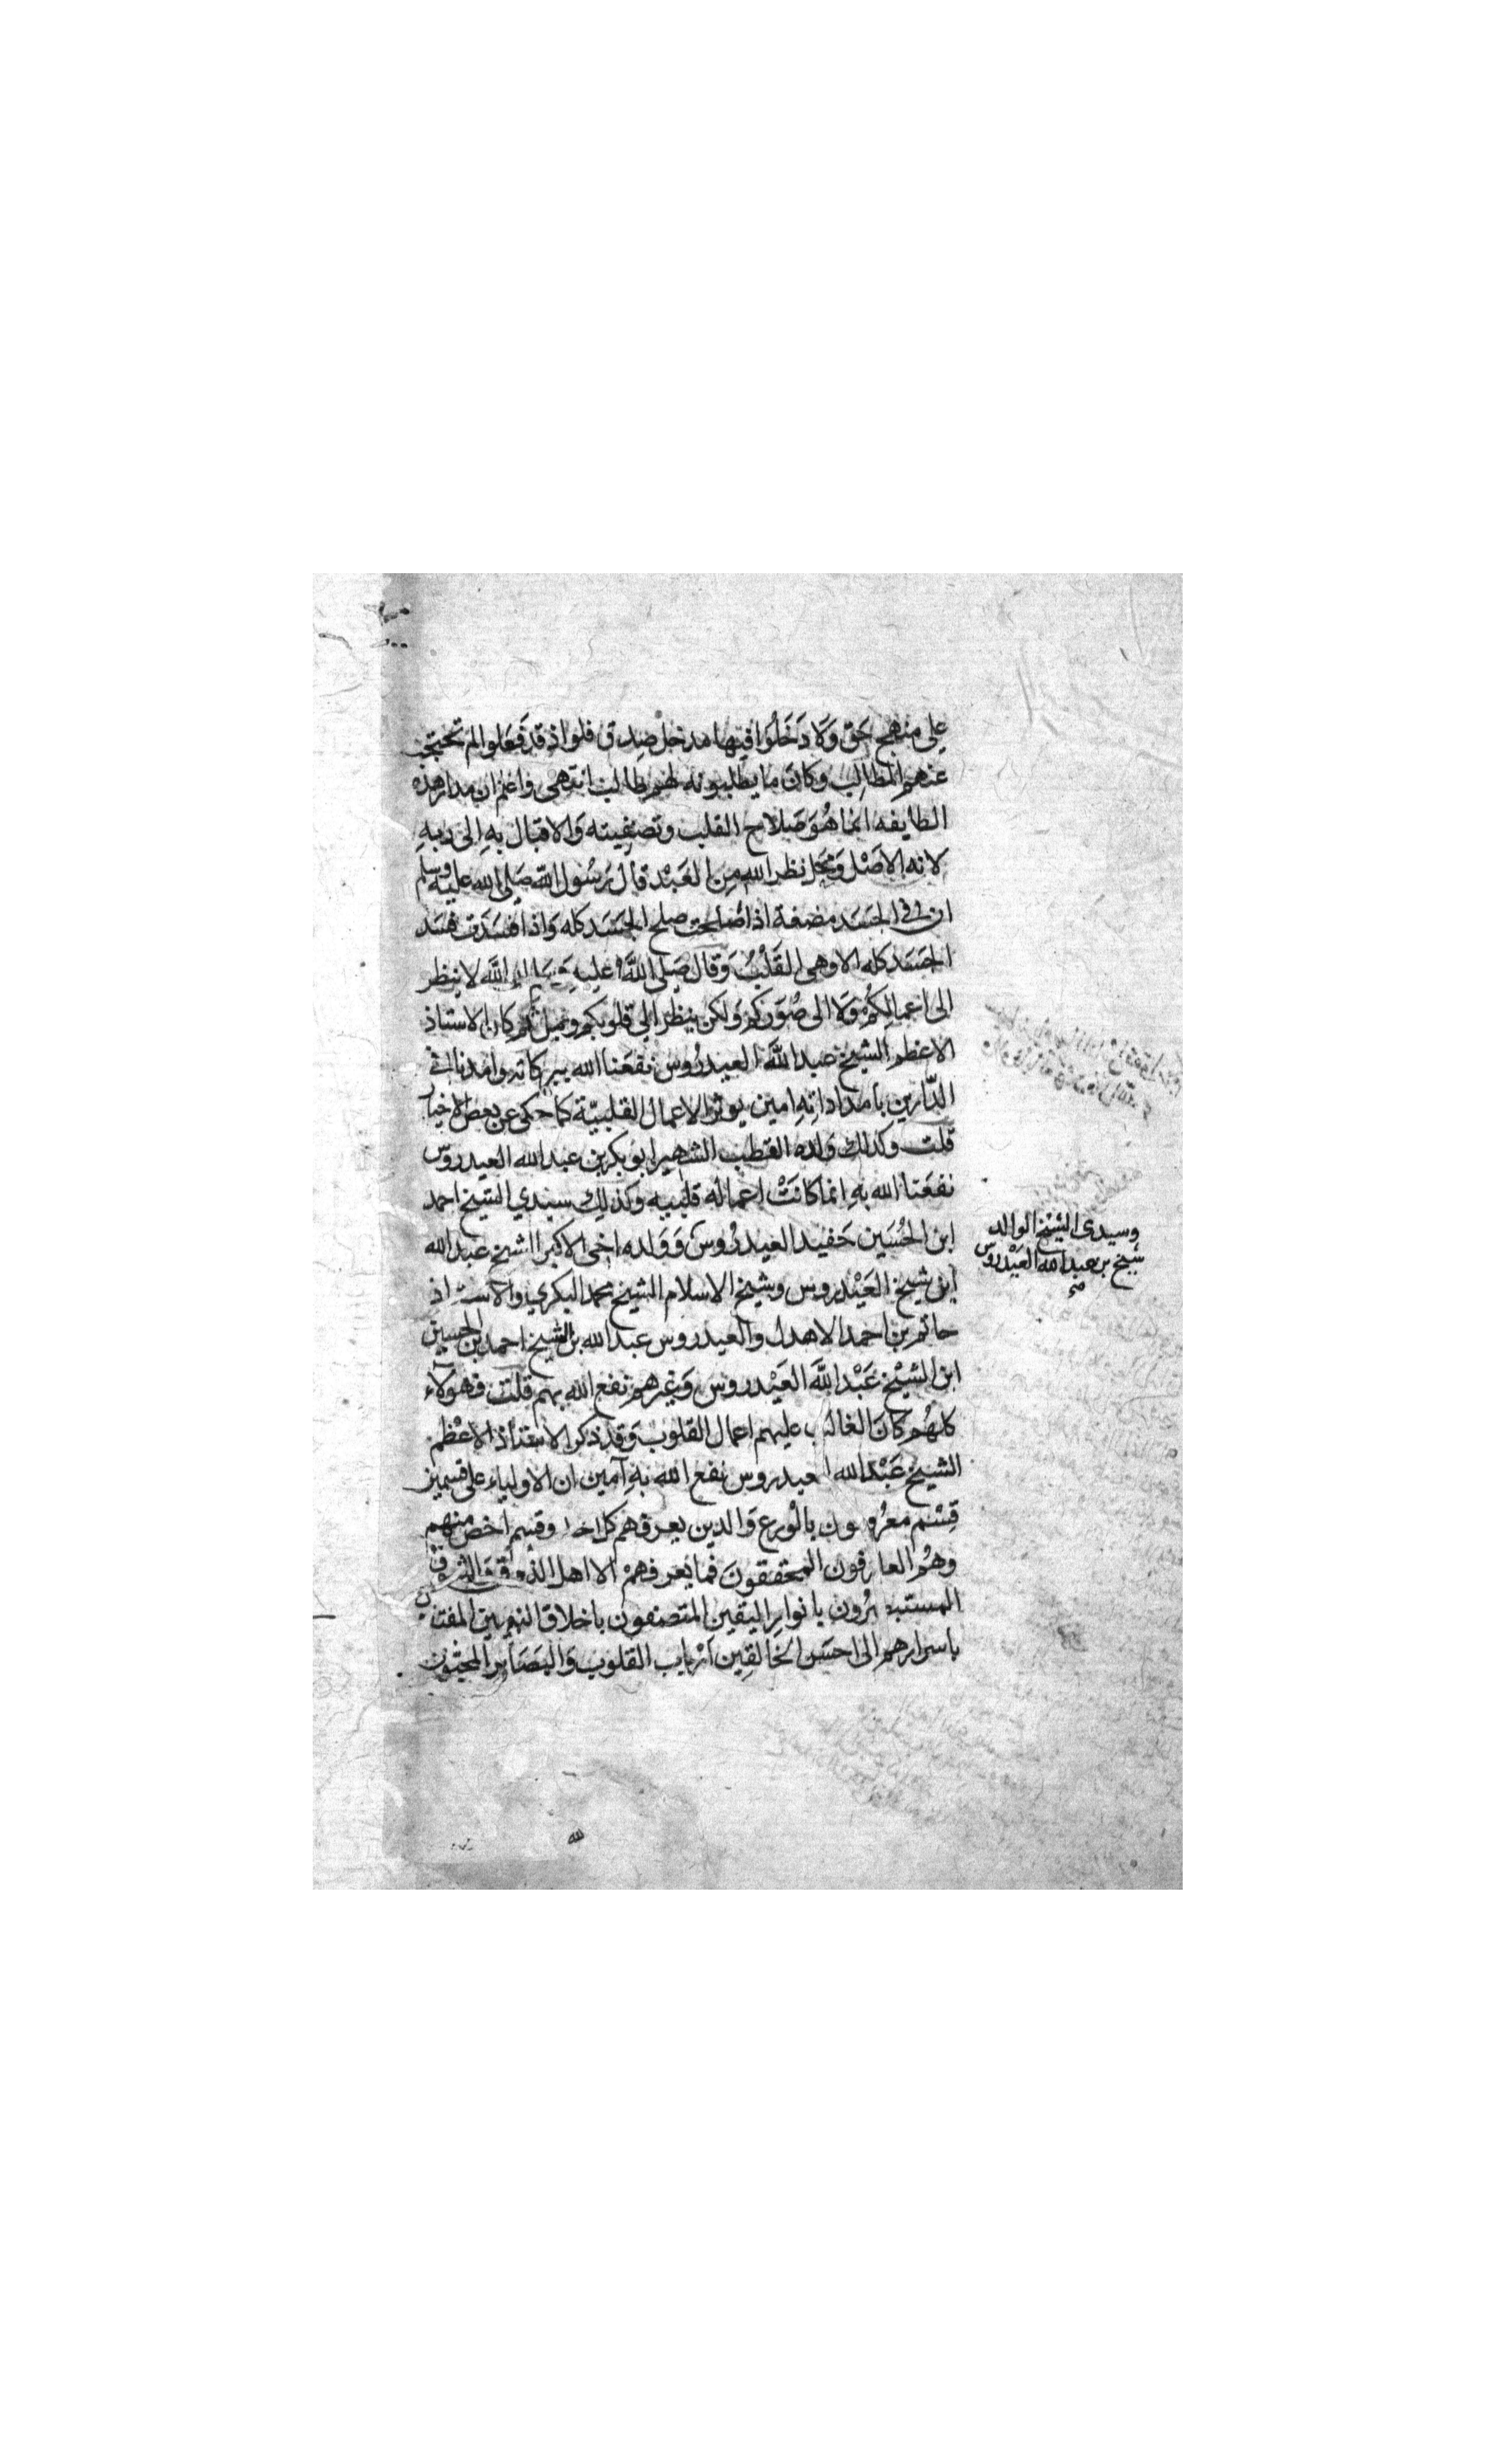 على منهج حَق وَلَا دَخَلُوا فيها مدخل صِدق فلو اذ قد فَعَلوا لم تحتجب
عنهم المطالب وكان ما يطلبونه لهم طالب انتهى واعلم ان مدار هذه
الطايفه انما هُوَ صَلاح القلب وتصفيته وَالاقبال بهِ الى ربهِ
لانه الاصْل وَمحَل نظر الله مِن العَبْد قال رَسُول الله صَلى الله عليه وسلم
ان في الجسَد مضغة اذا صلحت صلح الجسَد كله وَاذا فسَدَت فسَد
الجسَد كله الا وهى القَلْبُ وَقال صَلى اللهُ عليهِ وَسَلم ان اللَّه لا ينظر
الى اعمالِكُم وَلَا الى صُوَركم وَلكن ينظر الى قلوبكم ونياتكم كان الاستاذ
الاعظم الشيخ عبد اللَّه العيدرُوس نفعَنا الله ببركاته وامدنا في
الدّارين بامداداتِهِ امين يوثر الاعمال القلبيّة كما حكى عن بعض الاخيار
قلت وكذلك وَلده القطب الشهير ابو بكر بن عبد الله العيدروس
نفعَنا الله بهِ انما كانَتْ اعماله قلبيه وكذلك سيدي الشيخ احمد
ابن الحُسَين حَفيد العيدرُوس وَوَلده اخى الاكبر الشيخ عبد الله
ابن شيخ العَيْدروس وشيخ الاسلام الشيخ محمد البكري والاستاذ
حاتم بن احمد الاهدل والعيدروس عبد الله بن الشيخ احمد بن الحسين
ابن الشيْخ عَبْد اللَّه العَيْدروس وَغيرهم نفع الله بهم قلت فهولاء
كلهُم كانَ الغالب عليهم اعمال القلوب وَقد ذكر الاستاذ الاعْظم
الشيخ عَبْد الله العيدروس نفع الله بهِ آمين ان الاولياء على قسمين
قِسْم معرُوفون بالْورع وَالدين يعرفهم كل احد وقسم اخص منهم
وهُم العارفون المحققونَ فما يعرفهمْ الا اهل الذوق وَالشوق
المستبصرُون بانوار اليقين المتصفون باخلاق النبيين
باسرارهم الى احسَن الخالقِين اَرْباب القلوب وَالبَصَاير المحبّون
وسيدى الشيْخ الوالد
شيخ بن عبد الله العَيْدروس
صح